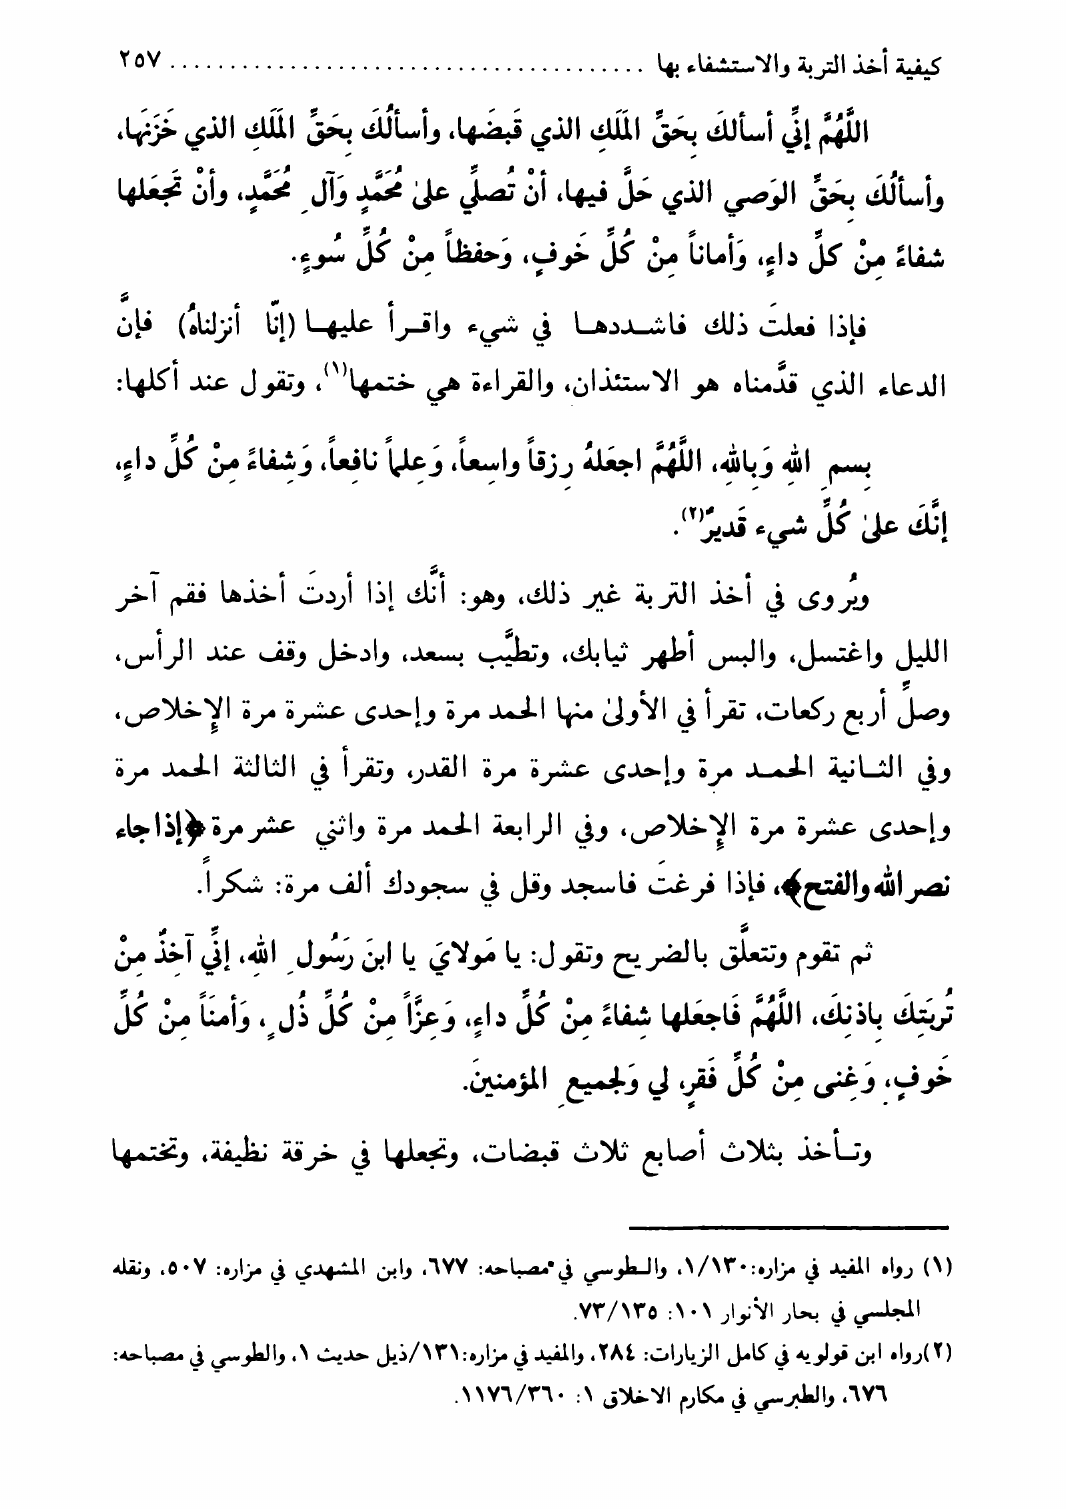 كيفية أخذ التربة والاستشفاء بها ........................................ ٢٥٧
اللَّهُمَّ إنِّي أسألكَ بِحَقِّ المَلَكِ الذي قَبضَها، وأسألُكَ بِحَقِّ المَلَكِ الذي خَزَنَها،
وأسألُكَ بِحَقِّ الوَصي الذي حَلَّ فيها، أنْ تُصلِّي علىٰ مُحَمَّدٍ وَآلِ مُحَمَّدٍ، وأنْ تَجعَلها
شفاءً مِنْ كلِّ داءٍ، وَأماناً مِنْ كُلِّ خَوفٍ، وَحفظاً مِنْ كُلِّ سُوءٍ.
فإذا فعلتَ ذلك فاشـددهـا في شيء واقـرأ عليهـا (إنّا أنزلناهُ) فإنَّ
الدعاء الذي قدَّمناه هو الاستئذان، والقراءة هي ختمها(١)، وتقول عند أكلها:
بِسمِ اللهِ وَبِاللهِ، اللَّهُمَّ اجعَلهُ رِزقاً واسِعاً، وَعِلماً نافِعاً، وَشِفاءً مِنْ كُلِّ داءٍ،
إنَّكَ علىٰ كُلِّ شيء قَديرٌ(٢).
ويُروى في أخذ التربة غير ذلك، وهو: أنَّك إذا أردتَ أخذها فقم آخر
الليل واغتسل، والبس أطهر ثيابك، وتطيَّب بسعد، وادخل وقف عند الرأس،
وصلِّ أربع ركعات، تقرأ في الأولىٰ منها الحمد مرة وإحدى عشرة مرة الإِخلاص،
وفي الثـانية الحمـد مرة وإحدى عشرة مرة القدر، وتقرأ في الثالثة الحمد مرة
وإحدى عشرة مرة الإِخلاص، وفي الرابعة الحمد مرة واثني عشر مرة ﴿إذا جاء
نصر الله والفتح﴾، فإذا فرغتَ فاسجد وقل في سجودك ألف مرة: شكراً.
ثم تقوم وتتعلَّق بالضريح وتقول: يا مَولايَ يا ابنَ رَسُولِ اللهِ، إنِّي آخِذٌ مِنْ
تُربَتِكَ بِاذنِكَ، اللَّهُمَّ فَاجعَلها شِفاءً مِنْ كُلِّ داءٍ، وَعِزَّاً مِنْ كُلِّ ذُلٍ، وَأمنَاً مِنْ كُلِّ
خَوفٍ، وَغِنى مِنْ كُلِّ فَقرٍ، لي وَلجميعِ المؤمنينَ.
وتـأخذ بثلاث أصابع ثلاث قبضات، وتجعلها في خرقة نظيفة، وتختمها
(١) رواه المفيد في مزاره:١/١٣٠، والـطوسي في مصباحه: ٦٧٧، وابن المشهدي في مزاره: ٥٠٧، ونقله
المجلسي في بحار الأنوار ١٠١: ٧٣/١٣٥.
(٢)رواه ابن قولويه في كامل الزيارات: ٢٨٤، والمفيد في مزاره:١٣١/ذيل حديث ١، والطوسي في مصباحه:
٦٧٦، والطبرسي في مكارم الاخلاق ١: ١١٧٦/٣٦٠.